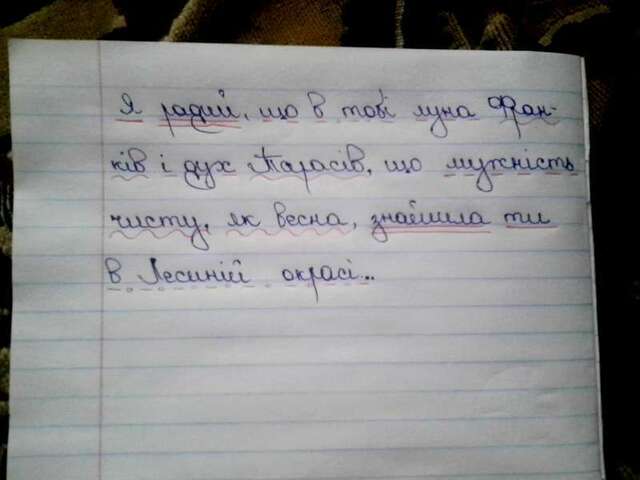 Я радий, що в тобі луна Фран-
ків і дух Тарасів, що мужність
чисту, як весна, знайшла ти
в Лесиній окрасі...